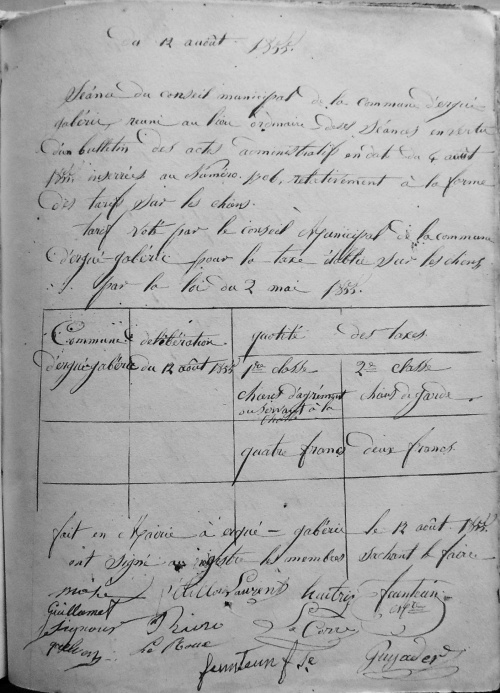 Du 12 août 1855.
Séance du conseil municipal de la commune d'ergué-
gabéric, reuni au lieu ordinaire de ses Séances en vertu
d'un bulletin des actes administratif en date du 4 août
1855 inserrées au Numéro relativement à la forme
des tarif sur les chiens.
tarif voté par le conseil Municipal de la commune
d'ergué-gabéric pour la taxe établie sur les chiens
par la loi du 2 mai 1855.
Commune délibération quotité des taxes
d'ergué-gabéric du 12 août 1855 1re classe 2e classe
chiens d'agrément chiens de garde
ou servant à la
chasse
quatre francs deux francs
fait en Mairie à ergué-gabéric le 12 août 1855
ont signé au registre les membres sachant le faire
mahé Laurent feunteun
Guillamet
Le Signour Riou Le Corre
Le Roux Guyader
feunteun f